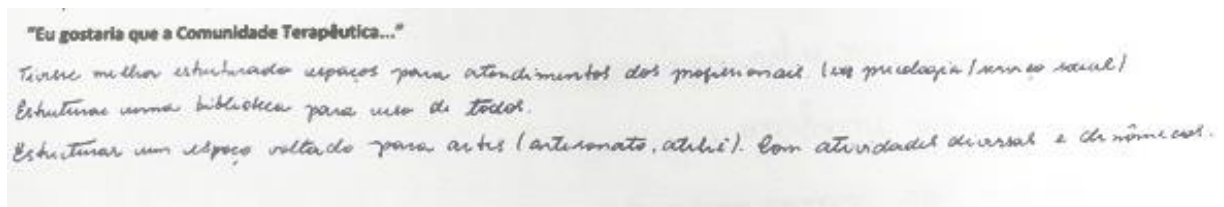 "Eu gostaria que a Comunidade Terapêutica..."
Tivesse melhor estruturado espaços para atendimentos dos profissionais (ex psicologia/serviço social)
Estruturar uma biblioteca para uso de todos.
Estruturar um espaço voltado para artes (artesanato, ateliê). Com atividades diversas e dinâmicas.